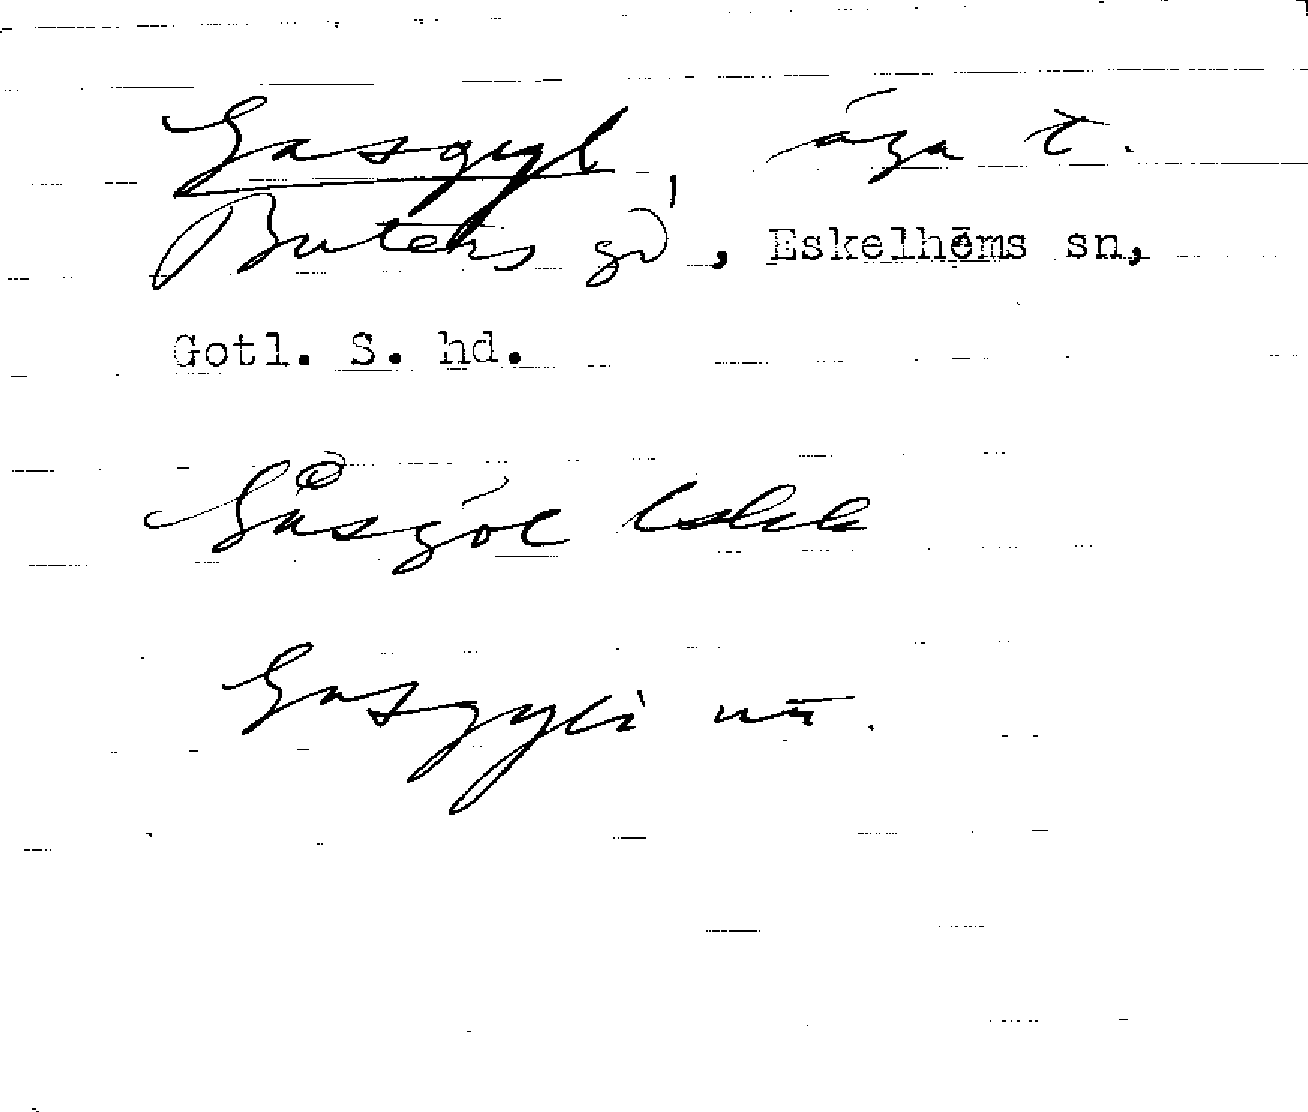 Gasgyl, äga t.
Buters gd, Eskelhems sn,
Gotl. S. hd.
Gåsgöl
Gasgyli